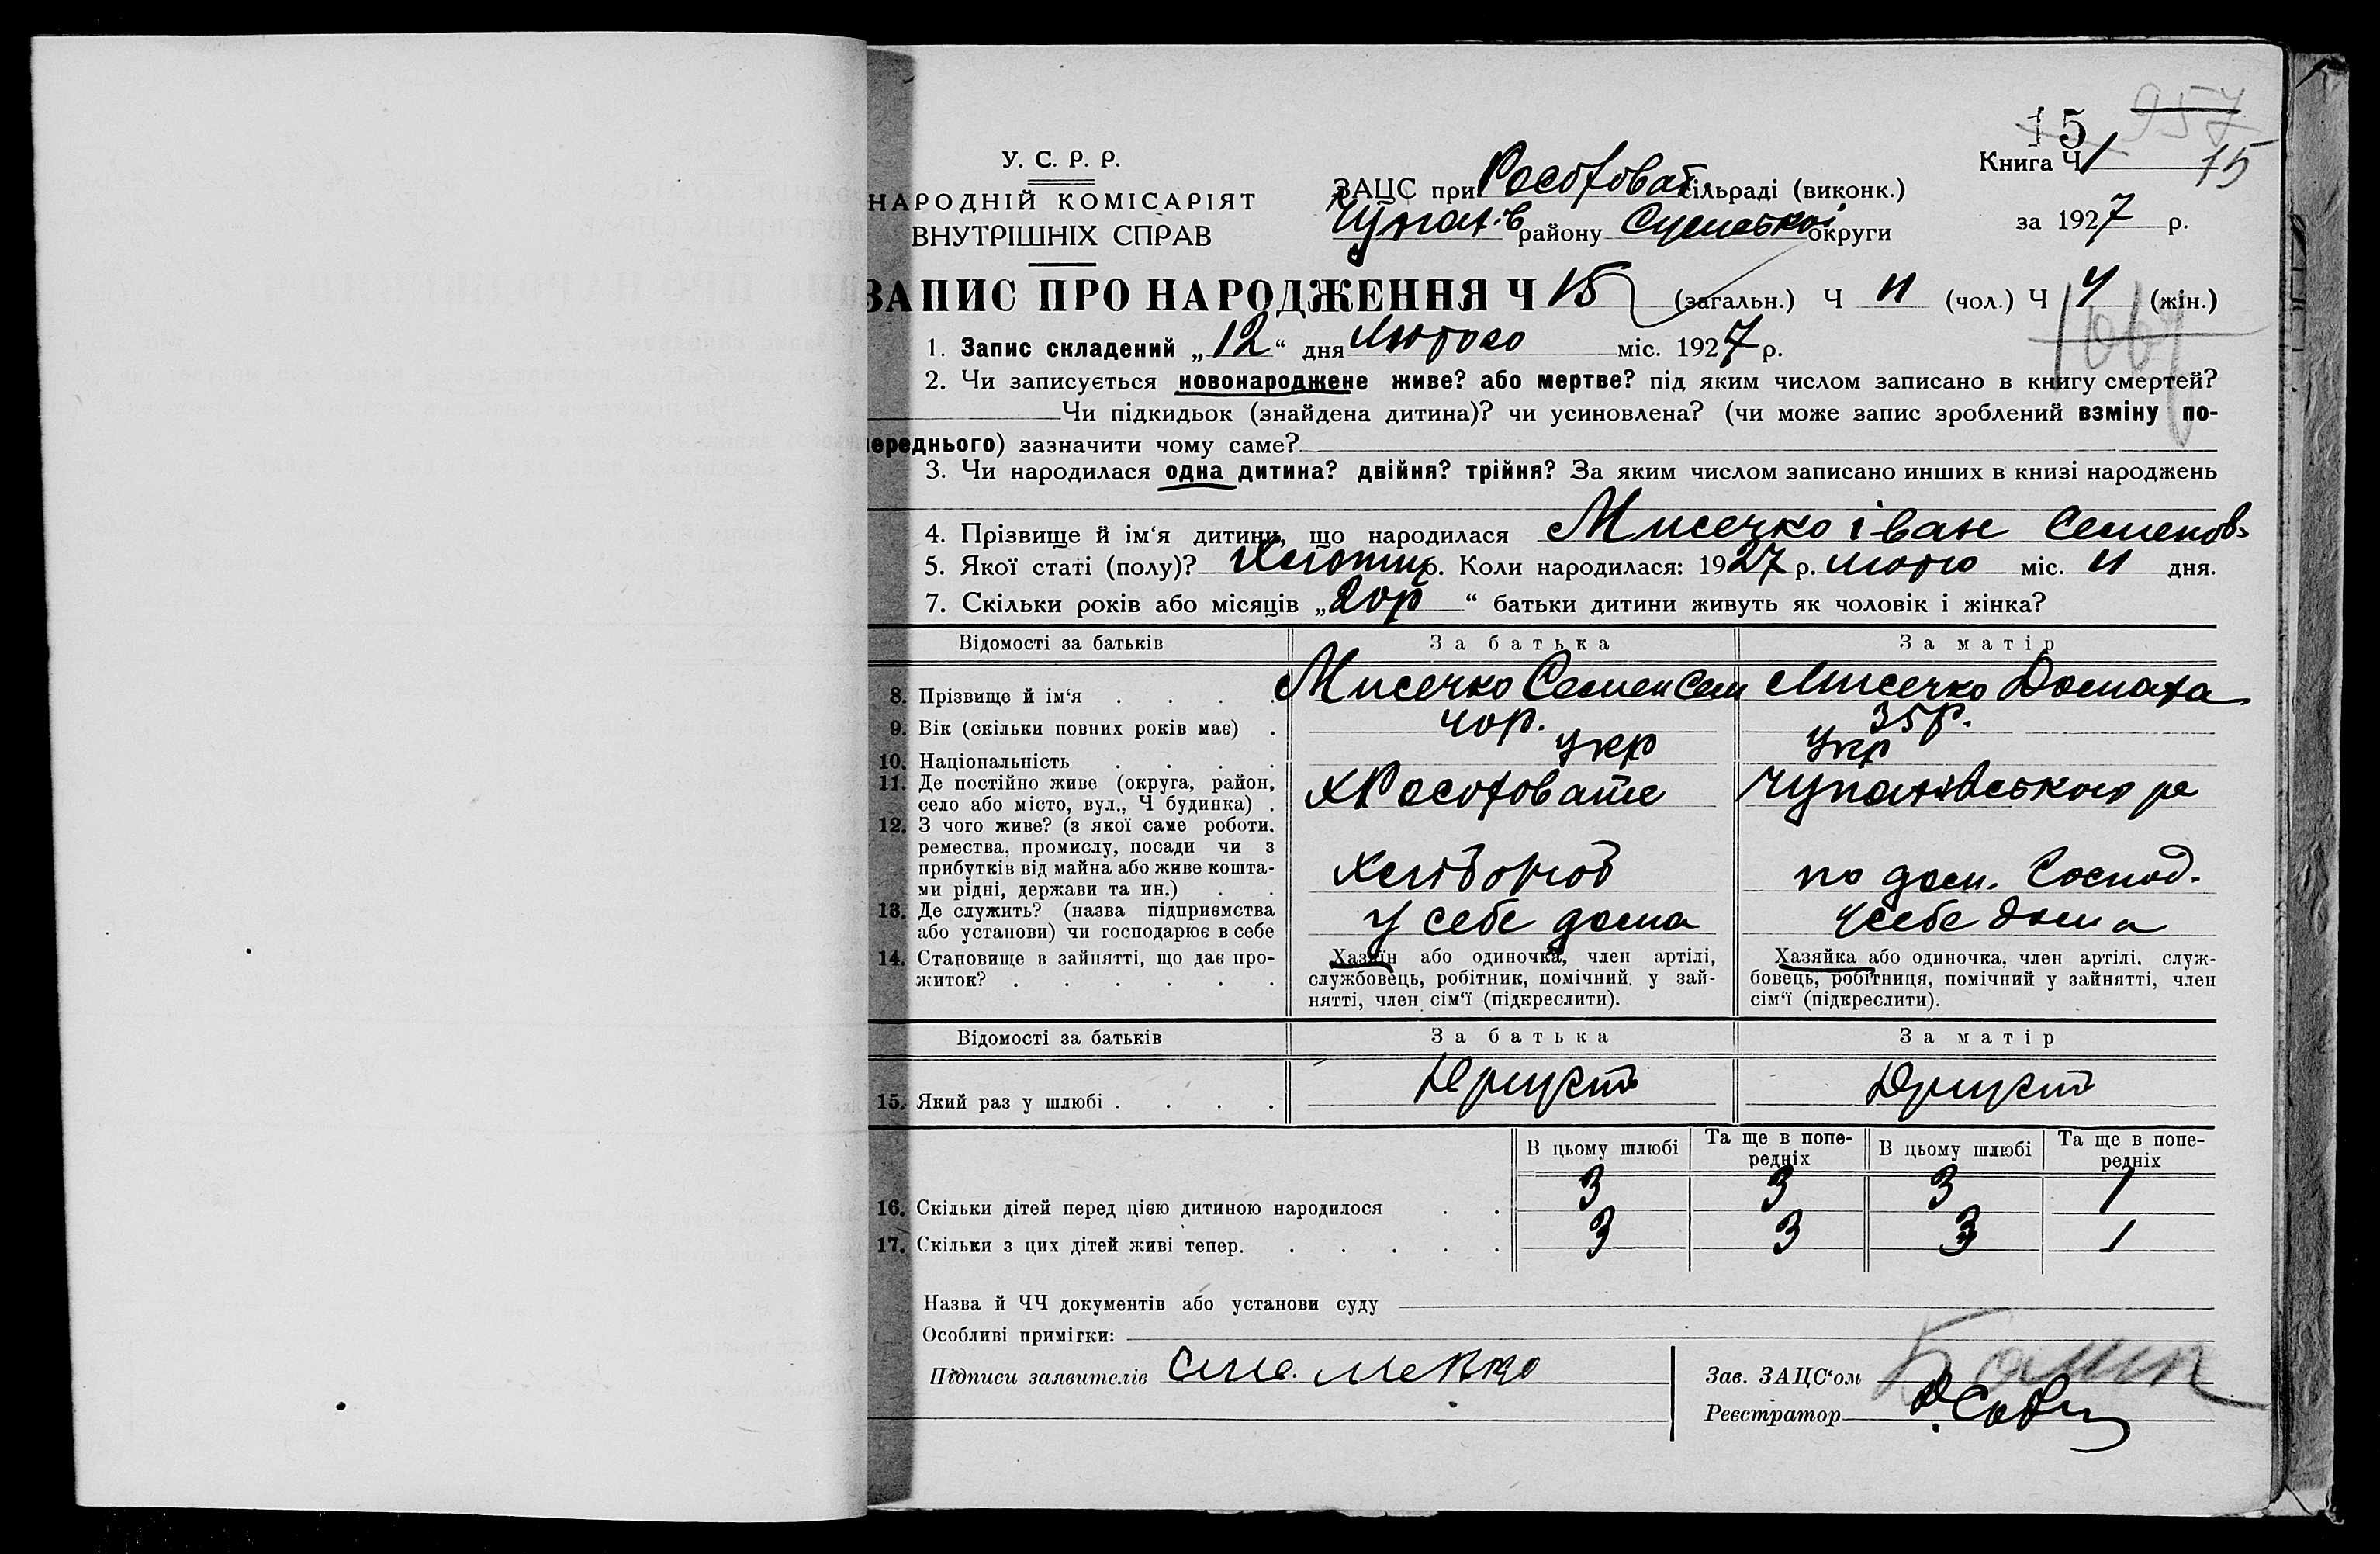 15 957
У. С. Р. Р.
НАРОДНІЙ КОМІСАРІЯТ
ВНУТРІШНІХ СПРАВ
ЗАЦС при Рософоват сільраді (виконк.)
Чупахів району Сумської округи
Книга Ч 1 15
за 1927 р.
ЗАПИС ПРО НАРОДЖЕННЯ Ч 15 (загальн.) Ч 11 (чол.) Ч 4 (жін.)
1. Запис складений „12“ дня Лютого міс. 1927 р.
2. Чи записується новонароджене живе? або мертве? під яким числом записано в книгу смертей?
Чи підкидьок (знайдена дитина)? чи усиновлена? (чи може запис зроблений взміну по-
переднього) зазначити чому саме?
3. Чи народилася одна дитина? двійня? трійня? За яким числом записано инших в книзі народжень
4. Прізвище й ім‘я дитини, що народилася Мисечко іван Семенов
5. Якої статі (полу)? Хлопчик 6. Коли народилася: 1927 р. лютого міс. 11 дня.
7. Скільки років або місяців „20р“ батьки дитини живуть як чоловік і жінка?
Відомості за батьків За батька За матір
8. Прізвище й ім‘я Мисечко Семен Сем Мисечко Домаха
9. Вік (скільки повних років має) 40р. 35р.
10. Національність Укр Укр
11. Де постійно живе (округа, район,
село або місто, вул., Ч будинка) х Рософовате Чупахівського ра
12. З чого живе? (з якої саме роботи,
ремества, промислу, посади чи з
прибутків від майна або живе кошта-
ми рідні, держави та ин.) Хлібороб по дом. Господ.
13. Де служить? (назва підприємства
або установи) чи господарює в себе у себе дома у себе дома
14. Становище в зайнятті, що дає про-
житок?
Хазяїн або одиночка, член артілі,
службовець, робітник, помічний у зай-
нятті, член сім‘ї (підкреслити).
Хазяйка або одиночка, член артілі, служ-
бовець, робітниця, помічний у зайнятті, член
сім‘ї (підкреслити).
Відомості за батьків За батька За матір
15. Який раз у шлюбі Другий Другий
В цьому шлюбі Та ще в попе-
редніх В цьому шлюбі Та ще в попе-
редніх
16. Скільки дітей перед цією дитиною народилося 3 3 3 1
17. Скільки з цих дітей живі тепер. 3 3 3 1
Назва й ЧЧ документів або установи суду
Особливі примітки:
Підписи заявителів
Зав. ЗАЦС‘ом
Реєстратор